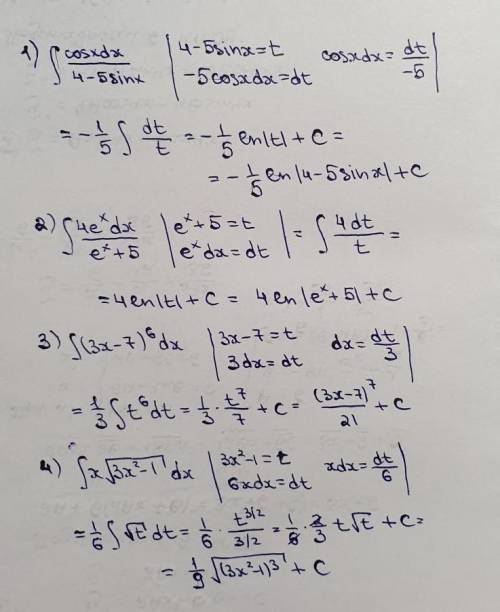 1) ∫ cosxdx / 4-5sinx | 4-5sinx=t cosxdx= dt/-5 |
-5cosxdx=dt
= -1/5 ∫ dt/t = -1/5 ln|t| + C =
= -1/5 ln|4-5sinx| + C
2) ∫ 4eˣdx / eˣ+5 | eˣ+5=t | = ∫ 4dt/t =
eˣdx=dt
= 4ln|t| + C = 4ln|eˣ+5| + C
3) ∫(3x-7)⁶dx | 3x-7=t dx= dt/3 |
3dx=dt
= 1/3 ∫t⁶dt = 1/3 · t⁷/7 + C = (3x-7)⁷/21 + C
4) ∫x√(3x²-1) dx | 3x²-1=t xdx= dt/6 |
6xdx=dt
= 1/6 ∫√t dt = 1/6 · t^(3/2) / (3/2) = 1/6 · 2/3 t√t + C =
= 1/9 √((3x²-1)³) + C